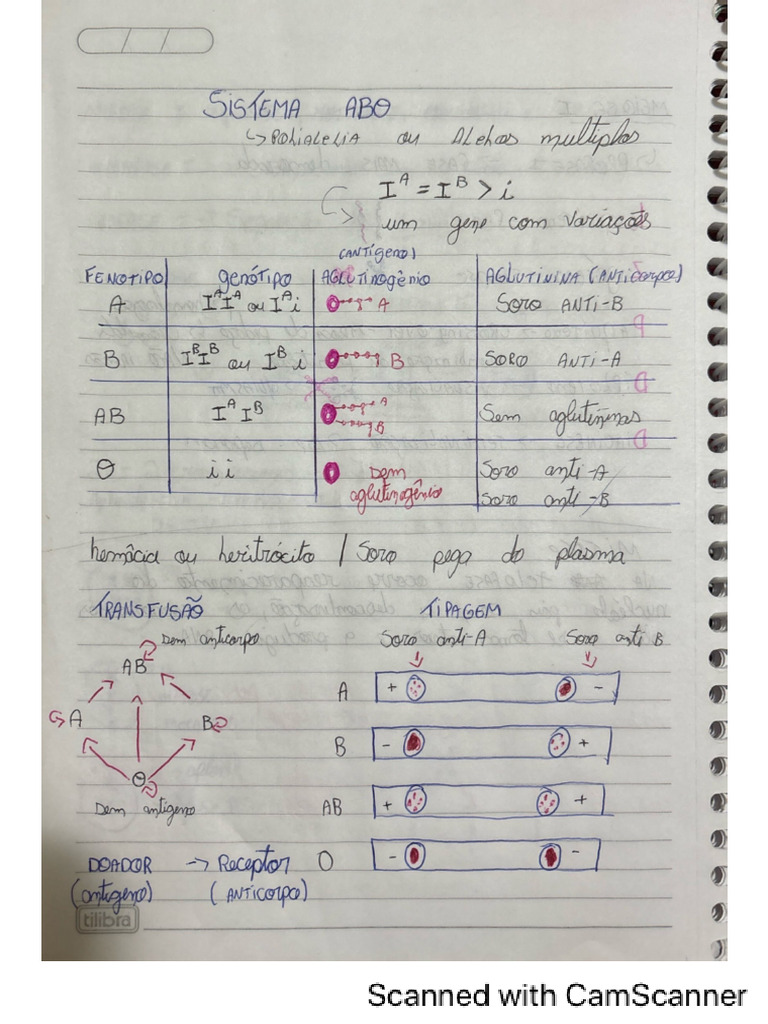 SISTEMA ABO
↳ POLIALELIA ou Alelos multiplos
I^A = I^B > i
↳> um gene com variações
(antígeno)
FENOTIPO genótipo AGLUTINOGÊNIO AGLUTININA (ANTICORPO)
A I^A I^A ou I^A i A SORO ANTI-B
B I^B I^B ou I^B i B SORO ANTI-A
AB I^A I^B A B Sem aglutininas
O i i Sem aglutinogênio Soro anti-A
Soro anti-B
hemácia ou heritrócito / Soro pega do plasma
TRANSFUSÃO TIPAGEM
Sem anticorpo Soro anti-A Soro anti B
AB
A B
O
Sem antigeno
A + -
B - +
AB + +
O - -
DOADOR → Receptor
(antigeno) (ANTICORPO)
tilibra
Scanned with CamScanner